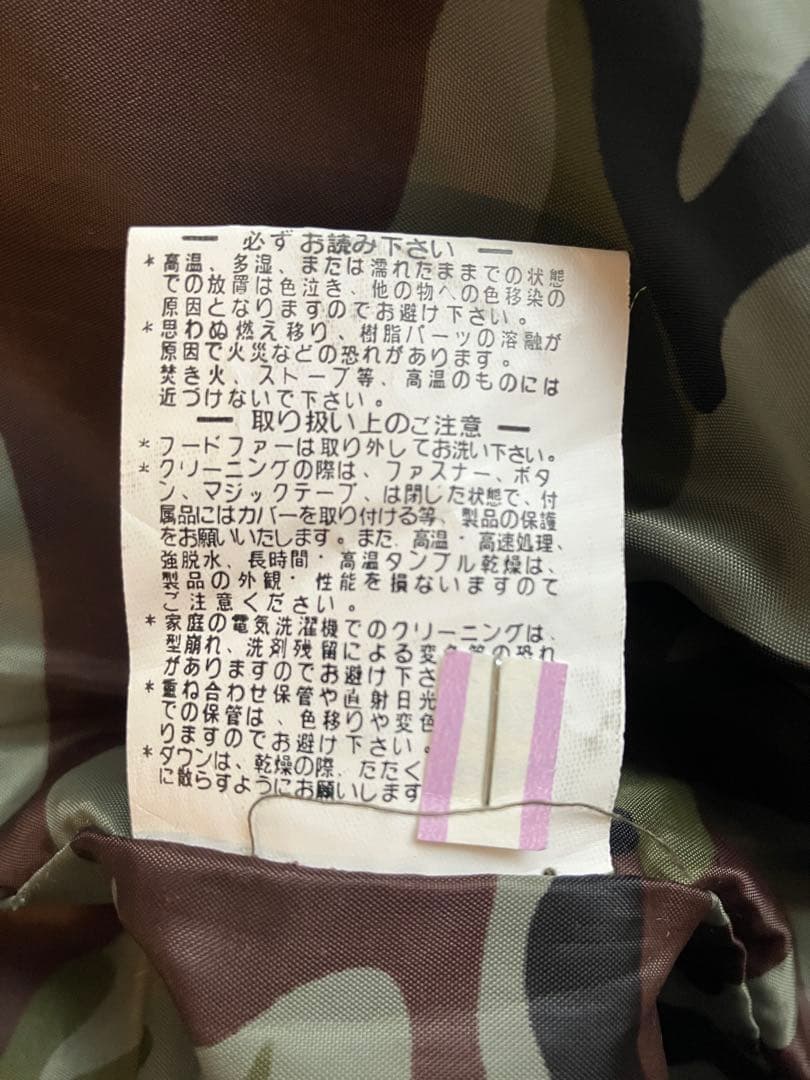 — 必ずお読み下さい —
* 高温、多湿、または濡れたままでの状態
での放置は色泣き、他の物への色移染の
原因となりますのでお避け下さい。
* 思わぬ燃え移り、樹脂パーツの溶融が
原因で火災などの恐れがあります。
焚き火、ストーブ等、高温のものには
近づけないで下さい。
— 取り扱い上のご注意 —
* フードファーは取り外してお洗い下さい。
* クリーニングの際は、ファスナー、ボタ
ン、マジックテープ、は閉じた状態で、付
属品にはカバーを取り付ける等、製品の保護
をお願いいたします。また、高温・高速処理、
強脱水、長時間・高温タンブル乾燥は、
製品の外観・性能を損ないますので
ご注意ください。
* 家庭の電気洗濯機でのクリーニングは、
型崩れ、洗剤残留による変色等の恐れ
がありますのでお避け下さ
* 重ね合わせ保管や直射日光
での保管は、色移りや変色
りますのでお避け下さい。
* ダウンは、乾燥の際、たたく
に散らすようにお願いします